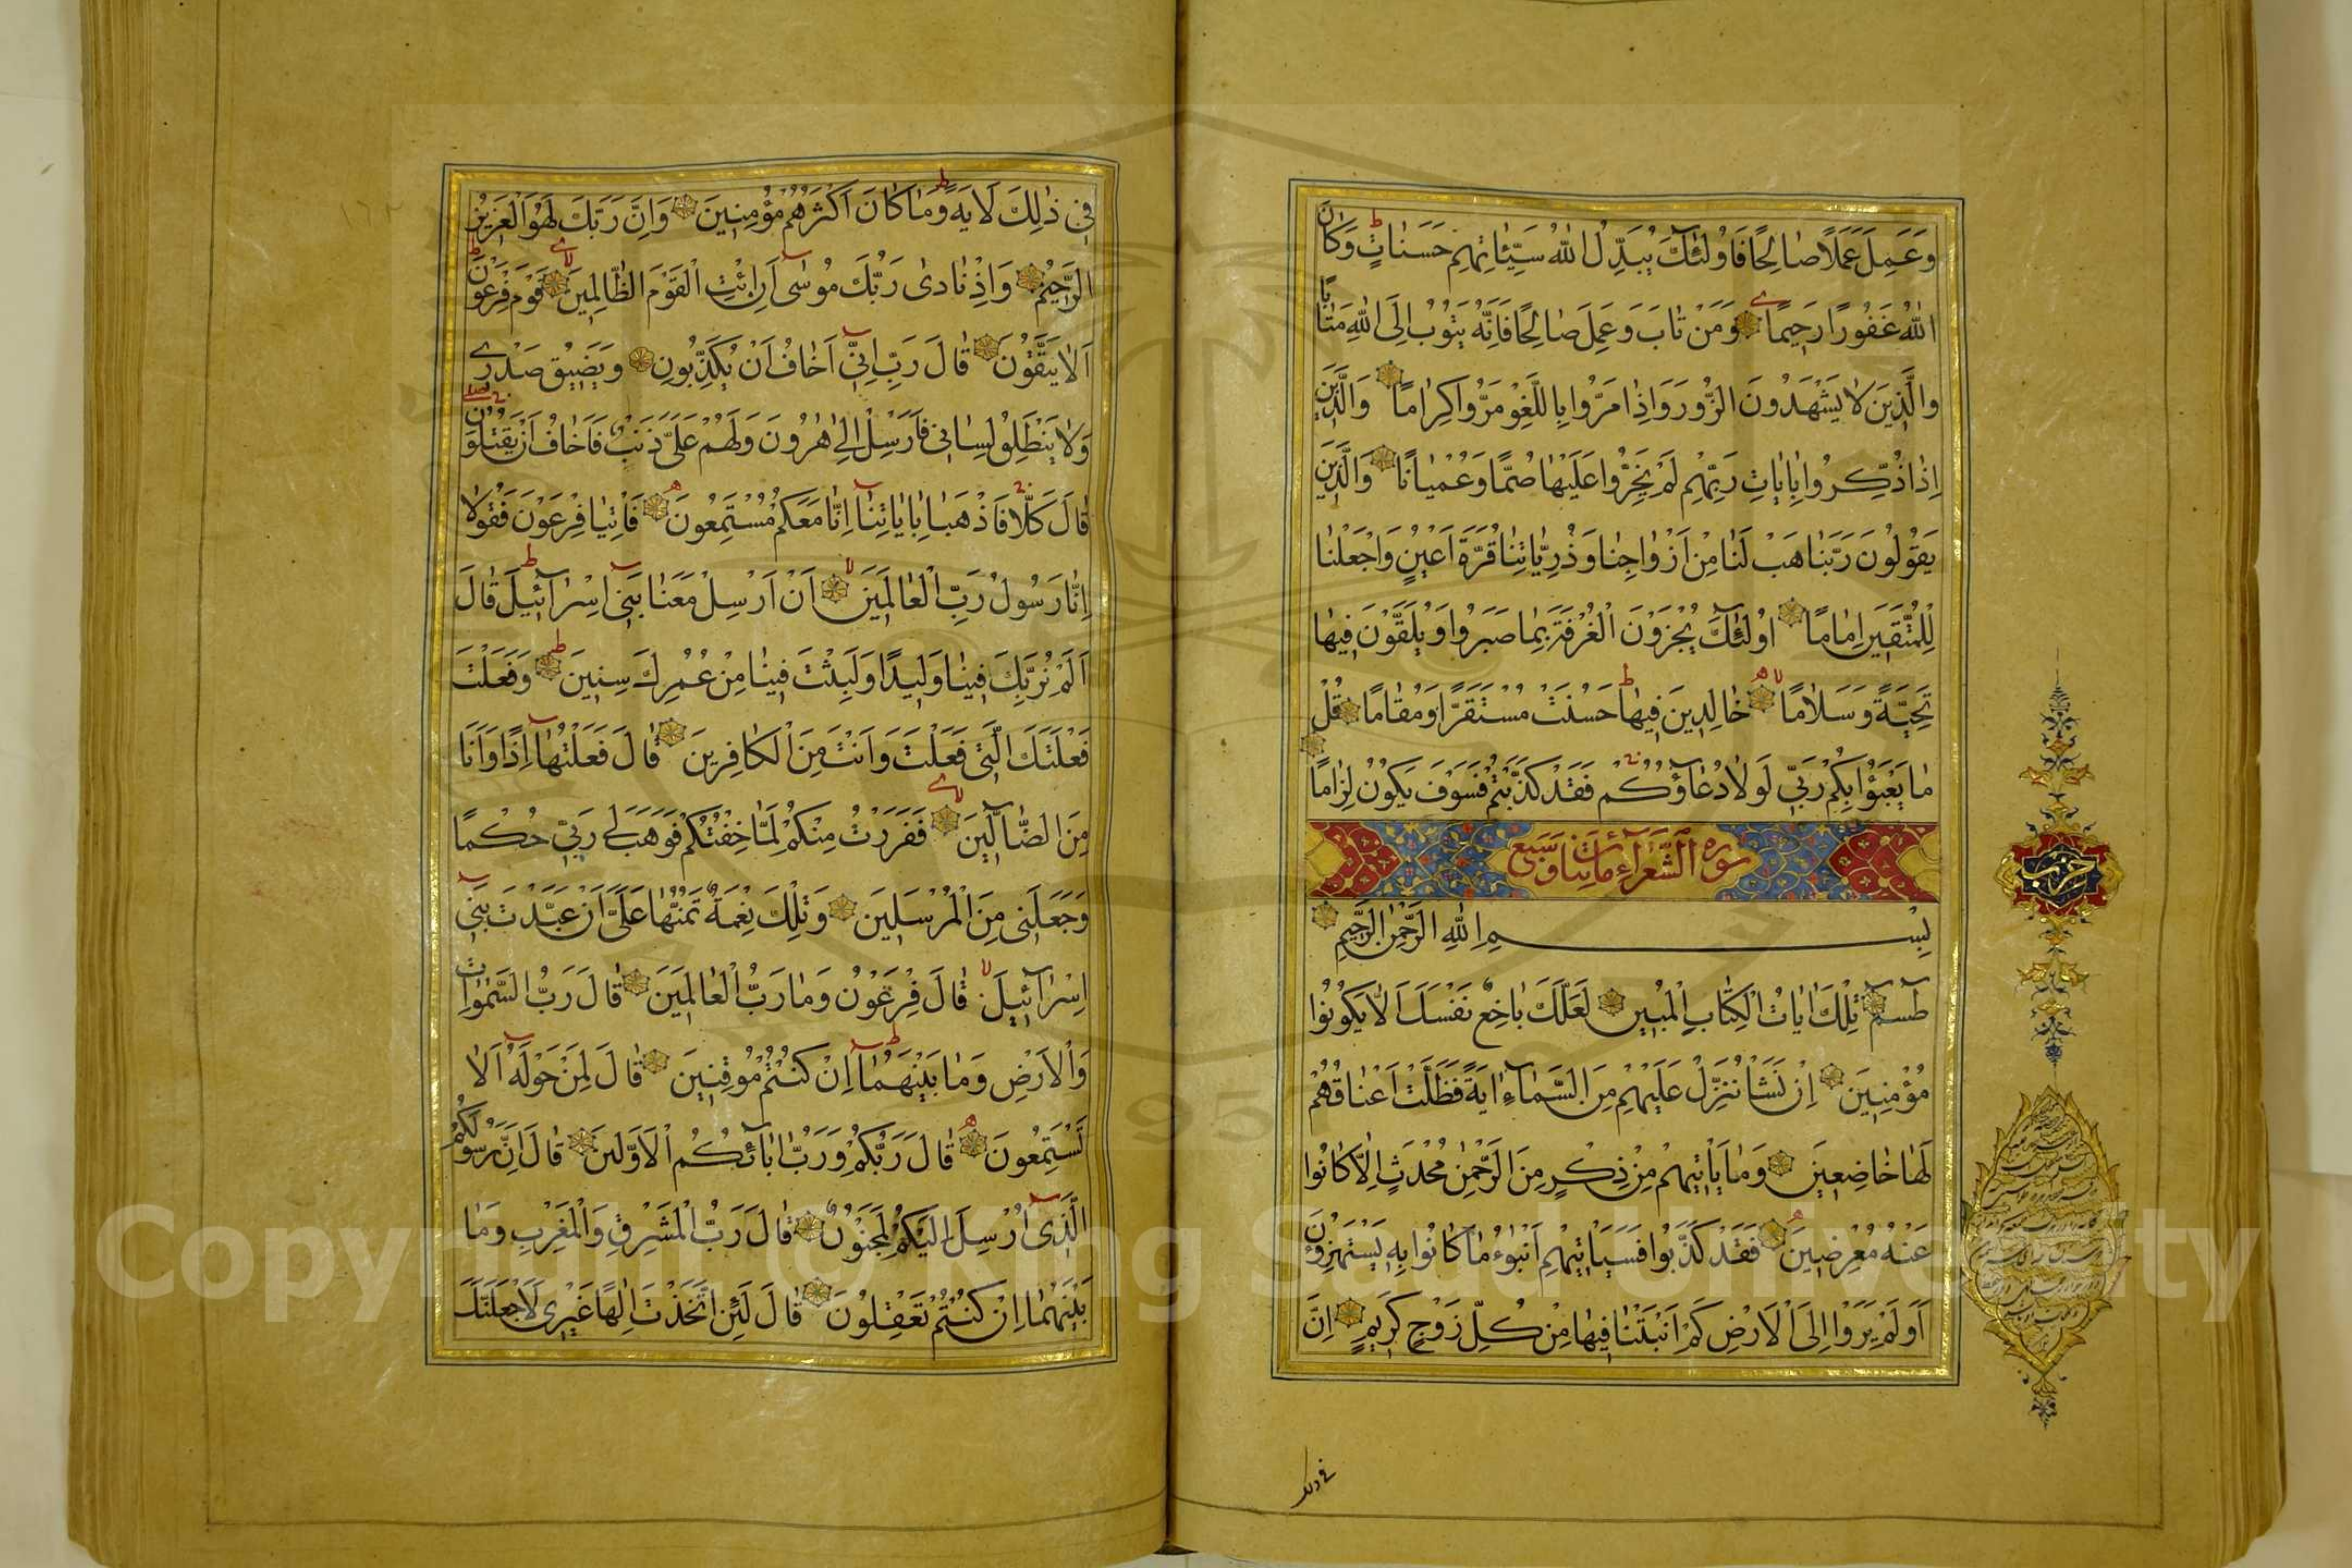 وَعَمِلَ عَمَلًا صَالِحًا فَاُولٰئِكَ يُبَدِّلُ اللّٰهُ سَيِّئَاتِهِمْ حَسَنَاتٍ وَكَانَ
اللّٰهُ غَفُورًا رَحِيمًا وَمَنْ تَابَ وَعَمِلَ صَالِحًا فَاِنَّهُ يَتُوبُ اِلَى اللّٰهِ مَتَابًا
وَالَّذِينَ لَا يَشْهَدُونَ الزُّورَ وَاِذَا مَرُّوا بِاللَّغْوِ مَرُّوا كِرَامًا وَالَّذِينَ
اِذَا ذُكِّرُوا بِاٰيَاتِ رَبِّهِمْ لَمْ يَخِرُّوا عَلَيْهَا صُمًّا وَعُمْيَانًا وَالَّذِينَ
يَقُولُونَ رَبَّنَا هَبْ لَنَا مِنْ اَزْوَاجِنَا وَذُرِّيَّاتِنَا قُرَّةَ اَعْيُنٍ وَاجْعَلْنَا
لِلْمُتَّقِينَ اِمَامًا اُولٰئِكَ يُجْزَوْنَ الْغُرْفَةَ بِمَا صَبَرُوا وَيُلَقَّوْنَ فِيهَا
تَحِيَّةً وَسَلَامًا خَالِدِينَ فِيهَا حَسُنَتْ مُسْتَقَرًّا وَمُقَامًا قُلْ
مَا يَعْبَؤُا بِكُمْ رَبِّي لَوْلَا دُعَاؤُكُمْ فَقَدْ كَذَّبْتُمْ فَسَوْفَ يَكُونُ لِزَامًا
سورة الشعراء مأيتان وسبع
بِسْمِ اللّٰهِ الرَّحْمٰنِ الرَّحِيمِ
طٰسٓمٓ تِلْكَ اٰيَاتُ الْكِتَابِ الْمُبِينِ لَعَلَّكَ بَاخِعٌ نَفْسَكَ اَلَّا يَكُونُوا
مُؤْمِنِينَ اِنْ نَشَأْ نُنَزِّلْ عَلَيْهِمْ مِنَ السَّمَاءِ اٰيَةً فَظَلَّتْ اَعْنَاقُهُمْ
لَهَا خَاضِعِينَ وَمَا يَأْتِيهِمْ مِنْ ذِكْرٍ مِنَ الرَّحْمٰنِ مُحْدَثٍ اِلَّا كَانُوا
عَنْهُ مُعْرِضِينَ فَقَدْ كَذَّبُوا فَسَيَأْتِيهِمْ اَنْبٰؤُا مَا كَانُوا بِهِ يَسْتَهْزِؤُنَ
اَوَلَمْ يَرَوْا اِلَى الْاَرْضِ كَمْ اَنْبَتْنَا فِيهَا مِنْ كُلِّ زَوْجٍ كَرِيمٍ اِنَّ
حزب
في ذلك
فِي ذٰلِكَ لَاٰيَةً وَمَا كَانَ اَكْثَرُهُمْ مُؤْمِنِينَ وَاِنَّ رَبَّكَ لَهُوَ الْعَزِيزُ
الرَّحِيمُ وَاِذْ نَادٰى رَبُّكَ مُوسٰى اَنِ ائْتِ الْقَوْمَ الظَّالِمِينَ قَوْمَ فِرْعَوْنَ
اَلَا يَتَّقُونَ قَالَ رَبِّ اِنِّي اَخَافُ اَنْ يُكَذِّبُونِ وَيَضِيقُ صَدْرِي
وَلَا يَنْطَلِقُ لِسَانِي فَاَرْسِلْ اِلٰى هٰرُونَ وَلَهُمْ عَلَيَّ ذَنْبٌ فَاَخَافُ اَنْ يَقْتُلُونِ
قَالَ كَلَّا فَاذْهَبَا بِاٰيَاتِنَا اِنَّا مَعَكُمْ مُسْتَمِعُونَ فَاْتِيَا فِرْعَوْنَ فَقُولَا
اِنَّا رَسُولُ رَبِّ الْعَالَمِينَ اَنْ اَرْسِلْ مَعَنَا بَنِي اِسْرَائِيلَ قَالَ
اَلَمْ نُرَبِّكَ فِينَا وَلِيدًا وَلَبِثْتَ فِينَا مِنْ عُمُرِكَ سِنِينَ وَفَعَلْتَ
فَعْلَتَكَ الَّتِي فَعَلْتَ وَاَنْتَ مِنَ الْكَافِرِينَ قَالَ فَعَلْتُهَا اِذًا وَاَنَا
مِنَ الضَّالِّينَ فَفَرَرْتُ مِنْكُمْ لَمَّا خِفْتُكُمْ فَوَهَبَ لِي رَبِّي حُكْمًا
وَجَعَلَنِي مِنَ الْمُرْسَلِينَ وَتِلْكَ نِعْمَةٌ تَمُنُّهَا عَلَيَّ اَنْ عَبَّدْتَ بَنِي
اِسْرَائِيلَ قَالَ فِرْعَوْنُ وَمَا رَبُّ الْعَالَمِينَ قَالَ رَبُّ السَّمٰوَاتِ
وَالْاَرْضِ وَمَا بَيْنَهُمَا اِنْ كُنْتُمْ مُوقِنِينَ قَالَ لِمَنْ حَوْلَهُ اَلَا
تَسْتَمِعُونَ قَالَ رَبُّكُمْ وَرَبُّ اٰبَائِكُمُ الْاَوَّلِينَ قَالَ اِنَّ رَسُولَكُمُ
الَّذِي اُرْسِلَ اِلَيْكُمْ لَمَجْنُونٌ قَالَ رَبُّ الْمَشْرِقِ وَالْمَغْرِبِ وَمَا
بَيْنَهُمَا اِنْ كُنْتُمْ تَعْقِلُونَ قَالَ لَئِنِ اتَّخَذْتَ اِلٰهًا غَيْرِي لَاَجْعَلَنَّكَ
Copyright © King Saud University